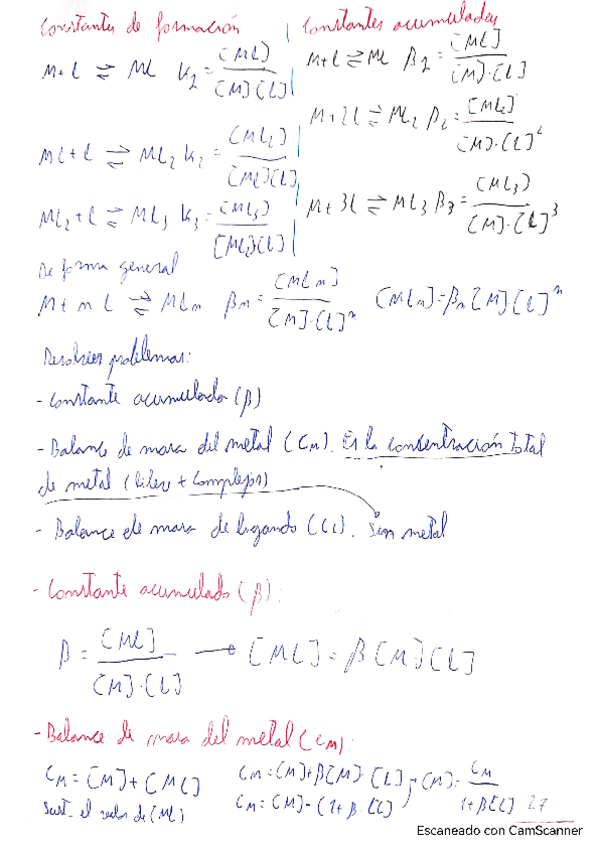 Constantes de formación
M+L ⇌ ML K2 = [ML] / [M]·[L]
ML+L ⇌ ML2 K2 = [ML2] / [ML][L]
ML2+L ⇌ ML3 K3 = [ML3] / [ML2][L]
Constantes acumuladas
M+L ⇌ ML β2 = [ML] / [M]·[L]
M+2L ⇌ ML2 β2 = [ML2] / [M]·[L]²
M+3L ⇌ ML3 β3 = [ML3] / [M]·[L]³
De forma general
M+n L ⇌ MLn βn = [MLn] / [M]·[L]ⁿ [MLn]=βn[M]·[L]ⁿ
Resolver problemas:
- Constante acumulada (β)
- Balance de masa del metal (CM). Es la consentración total
de metal (libre + complejos)
- Balance de masa de ligando (CL). Sin metal
- Constante acumulada (β):
β = [ML] / [M]·[L] → [ML] = β[M][L]
- Balance de masa del metal (CM):
CM = [M]+[ML] CM = [M]+β[M]·[L] [M] = CM / 1+β[L]
Sust. el valor de [ML] CM = [M]·(1+β·[L])
27
Escaneado con CamScanner